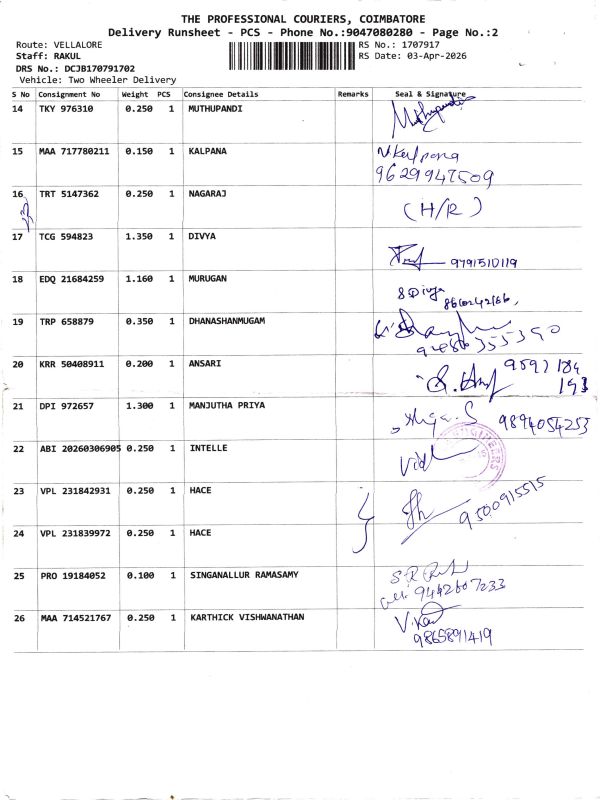 THE PROFESSIONAL COURIERS, COIMBATORE
Delivery Runsheet - PCS - Phone No.:9047080280 - Page No.:2
Route: VELLALORE RS No.: 1707917
Staff: RAKUL RS Date: 03-Apr-2026
DRS No.: DCJB170791702
Vehicle: Two Wheeler Delivery
S No Consignment No Weight PCS Consignee Details Remarks Seal & Signature
14 TKY 976310 0.250 1 MUTHUPANDI Muthupandi
15 MAA 717780211 0.150 1 KALPANA N.Kalpana
9629947509
16 TRT 5147362 0.250 1 NAGARAJ (H/R)
17 TCG 594823 1.350 1 DIVYA 9791510119
18 EDQ 21684259 1.160 1 MURUGAN
19 TRP 658879 0.350 1 DHANASHANMUGAM
20 KRR 50408911 0.200 1 ANSARI 9597 184
193
21 DPI 972657 1.300 1 MANJUTHA PRIYA 9894054253
22 ABI 20260306905 0.250 1 INTELLE
23 VPL 231842931 0.250 1 HACE 9500915515
24 VPL 231839972 0.250 1 HACE
25 PRO 19184052 0.100 1 SINGANALLUR RAMASAMY
9442607233
26 MAA 714521767 0.250 1 KARTHICK VISHWANATHAN
9865891419